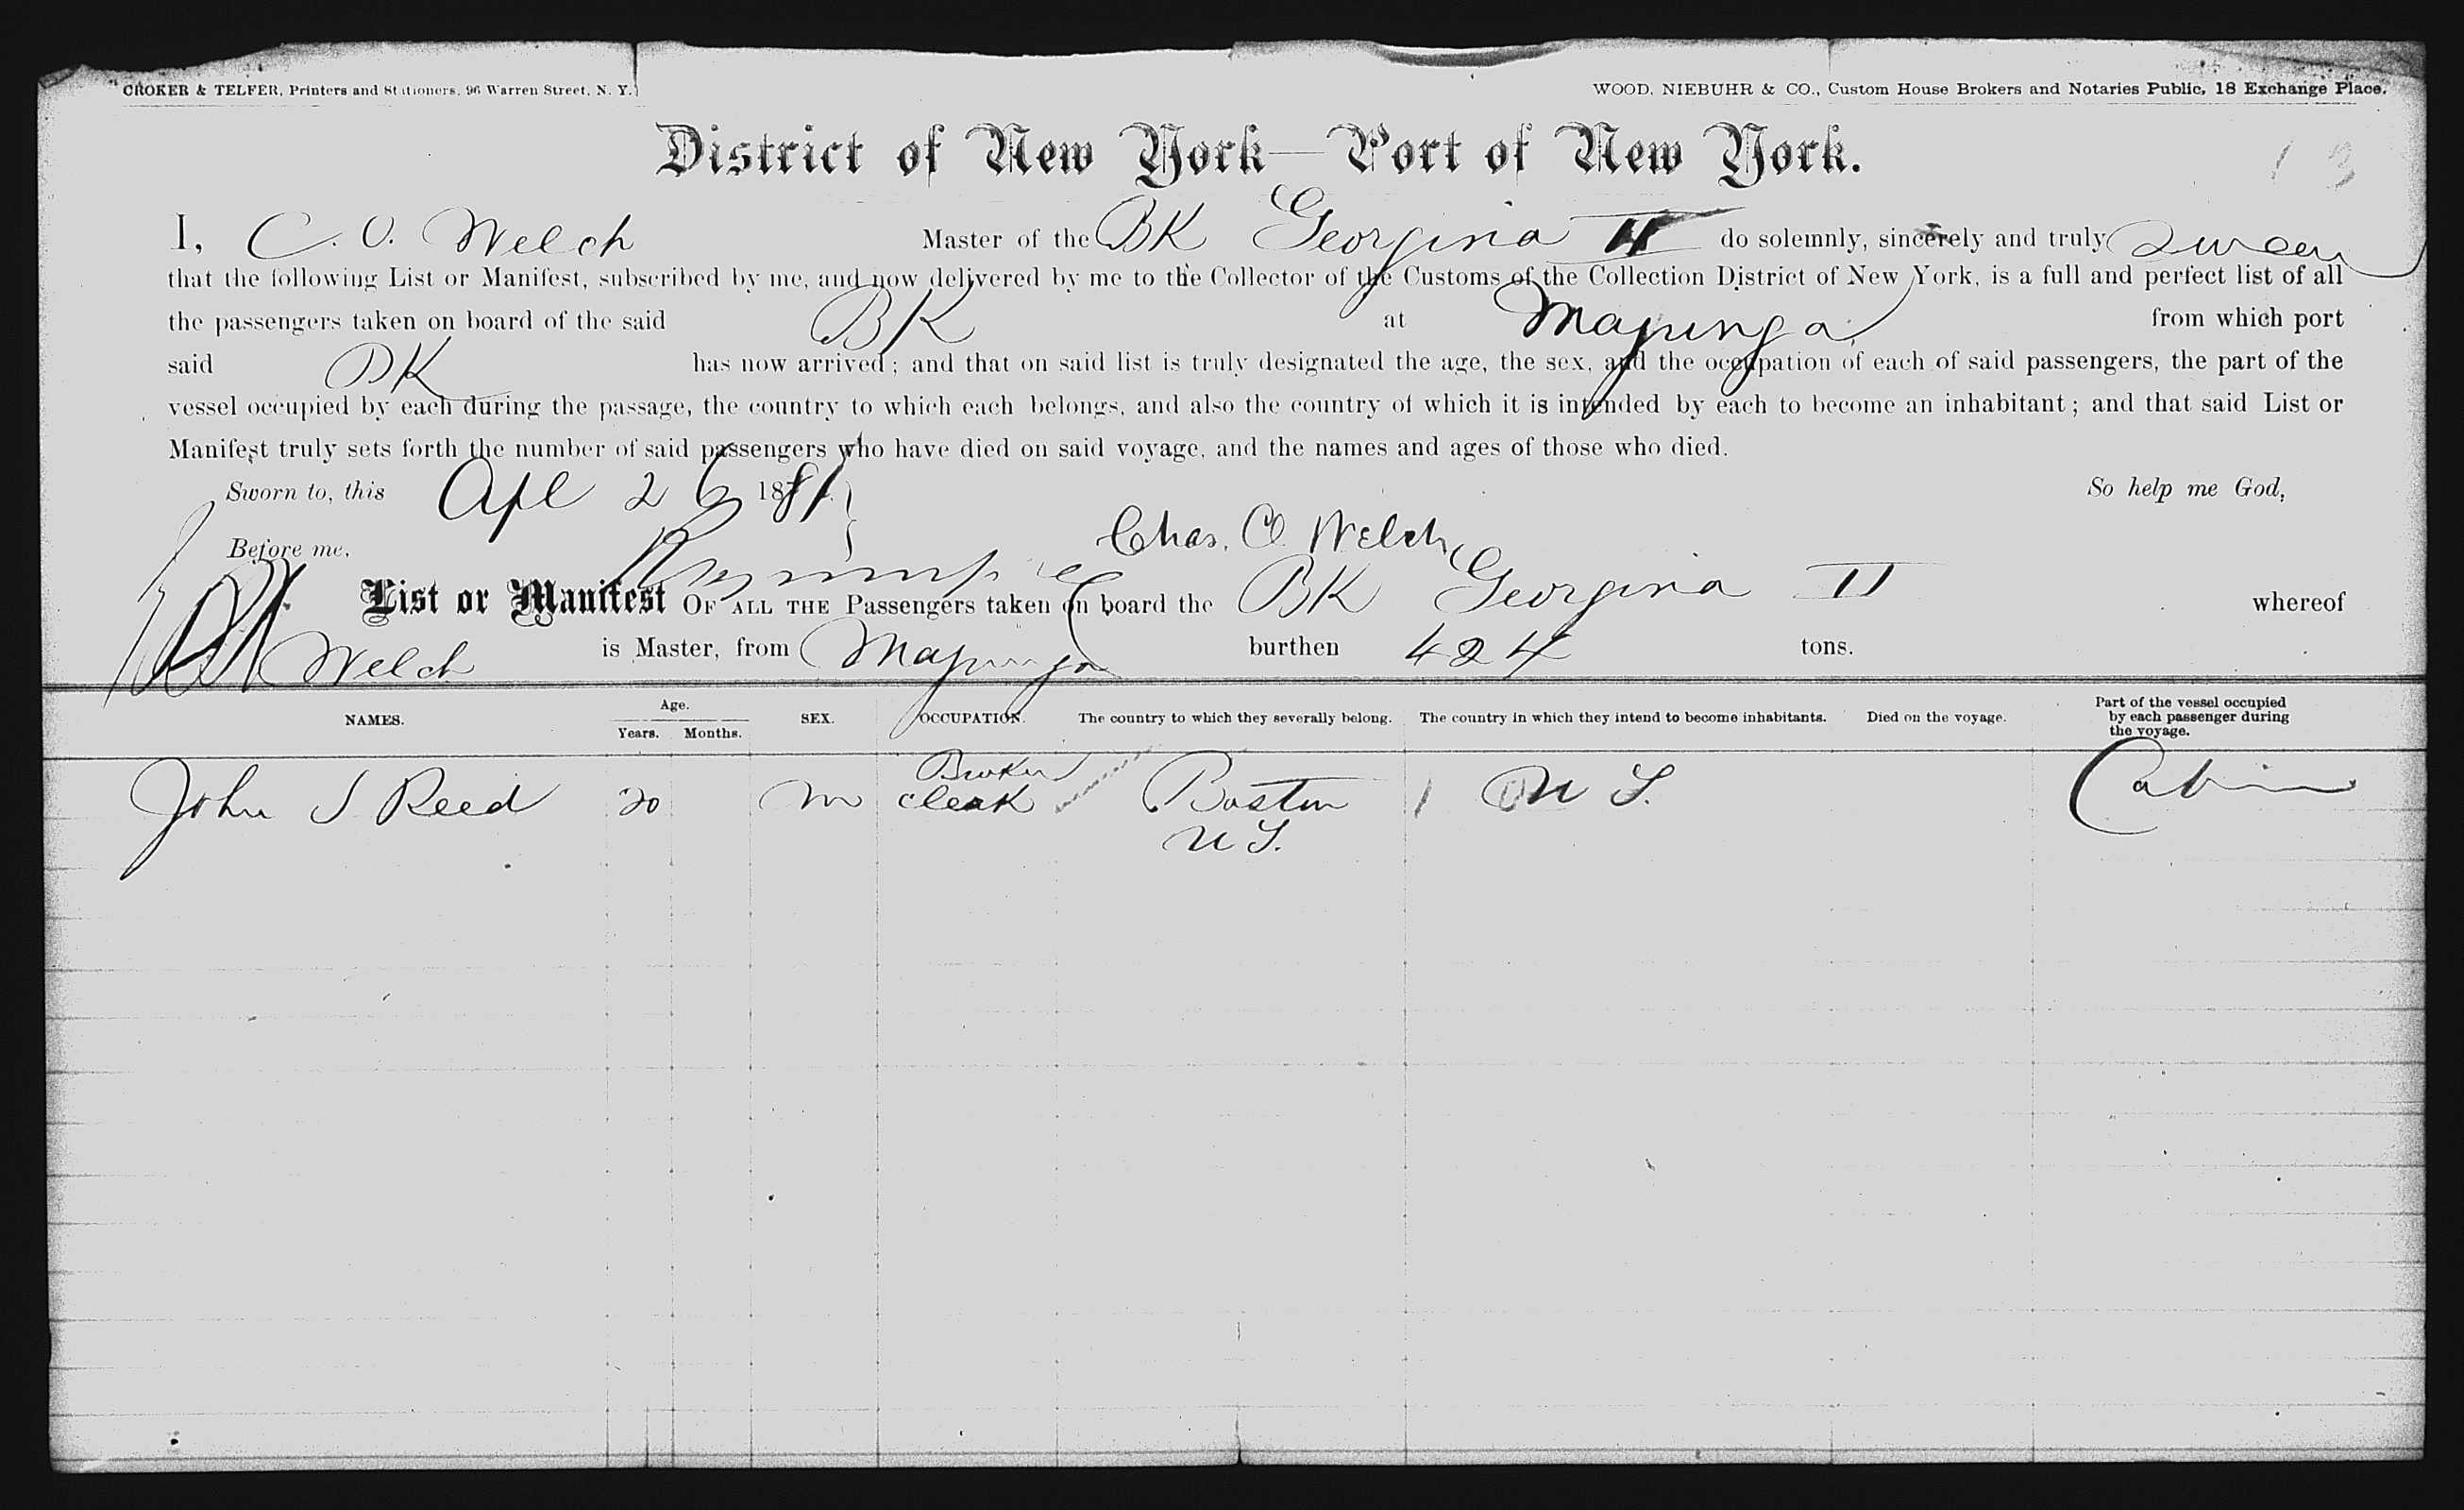 CROKER & TELFER, Printers and Stationers, 96 Warren Street, N. Y.
WOOD, NIEBUHR & CO., Custom House Brokers and Notaries Public, 18 Exchange Place.
District of New York—Port of New York.
1 3
I, C. O. Welch Master of the BK Georgina II do solemnly, sincerely and truly swear
that the following List or Manifest, subscribed by me, and now delivered by me to the Collector of the Customs of the Collection District of New York, is a full and perfect list of all
the passengers taken on board of the said BK at Majunga from which port
said BK has now arrived; and that on said list is truly designated the age, the sex, and the occupation of each of said passengers, the part of the
vessel occupied by each during the passage, the country to which each belongs, and also the country of which it is intended by each to become an inhabitant; and that said List or
Manifest truly sets forth the number of said passengers who have died on said voyage, and the names and ages of those who died.
Sworn to, this Apl 26 1881 So help me God,
Before me, Chas. O Welch
List or Manifest OF ALL THE Passengers taken on board the BK Georgina II whereof
Welch is Master, from Majunga burthen 424 tons.
NAMES. Age. Years. Months. SEX. OCCUPATION. The country to which they severally belong. The country in which they intend to become inhabitants. Died on the voyage. Part of the vessel occupied by each passenger during the voyage.
John S Reed 20 m Broker Clerk Boston U S. 1 U S. Cabin